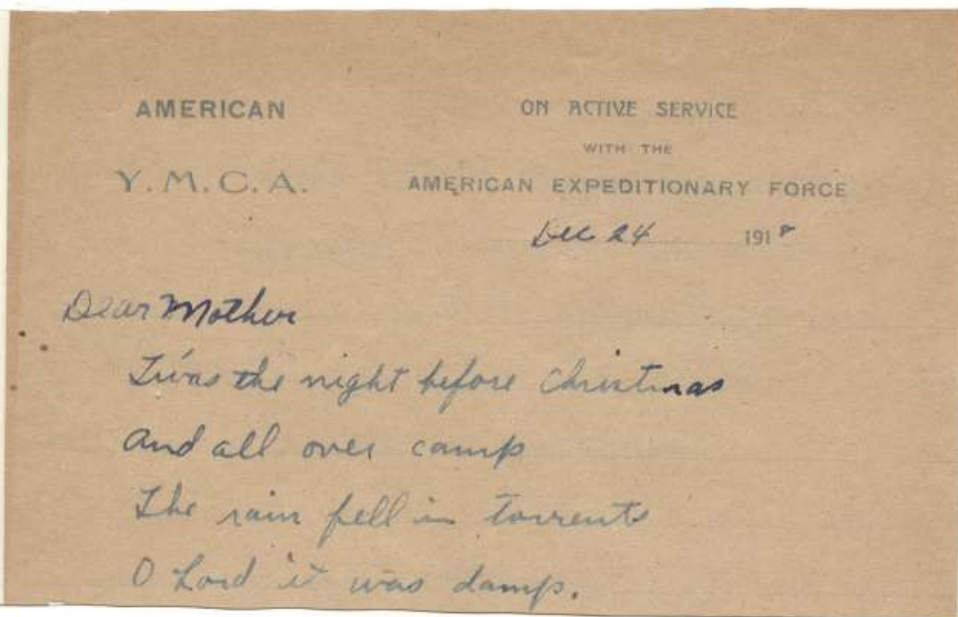 AMERICAN
Y.M.C.A.
ON ACTIVE SERVICE
WITH THE
AMERICAN EXPEDITIONARY FORCE
Dec 24 1918
Dear Mother
Twas the night before Christmas
and all over camp
The rain fell in torrents
O Lord it was damp.